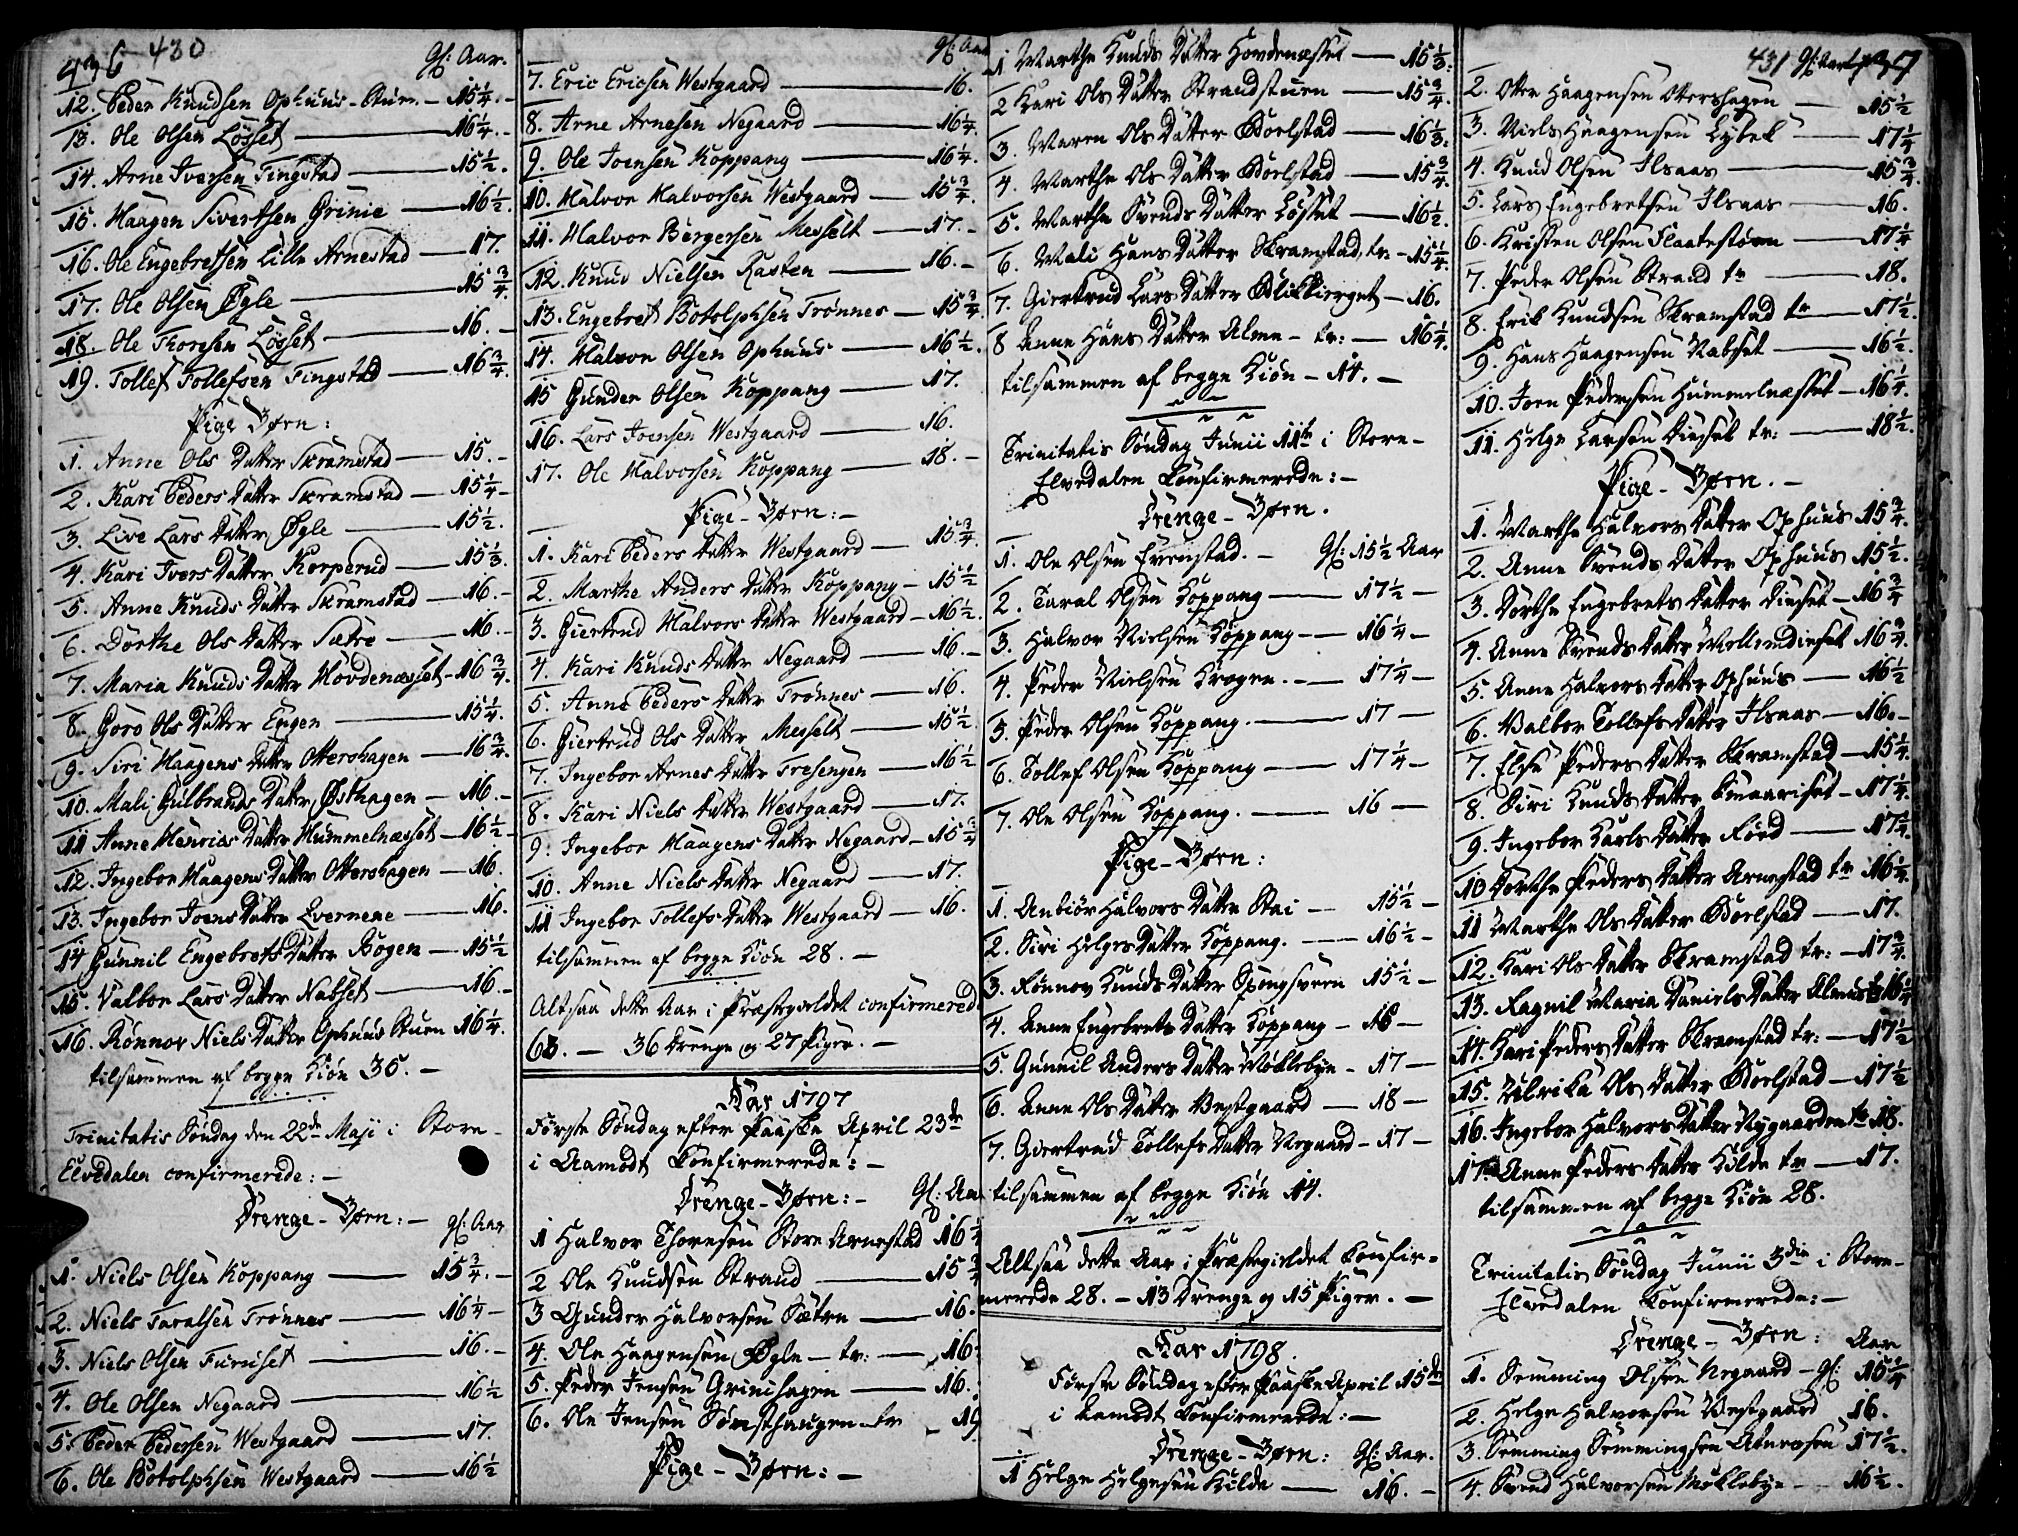 436 430 gl: Aar.
12. Peder Knudsen Ophuus-Stuen - 15 1/4.
13. Ole Olsen Løsset - 16 1/4.
14. Arne Iversen Tingstad - 15 1/2.
15. Haagen Sivertsen Grinie - 16 1/2.
16. Ole Engebretsen Lille Arnestad - 17.
17. Ole Olsen Øgle - 15 3/4.
18. Ole Thoresen Løsset - 16.
19. Tollef Tollefsen Tingstad - 16 3/4.
Pige Børn:
1. Anne Ols Datter Skramstad - 15.
2. Kari Peders Datter Skramstad - 15 1/4
3. Live Lars Datter Øgle - 15 1/2.
4. Kari Ivers Datter Korperud - 15 1/3.
5. Anne Knuds Datter Skramstad - 16.
6. Dorthe Ols Datter Sætre - 16.
7. Maria Knuds Datter Hovdenæsset - 16 3/4.
8. Goro Ols Datter Engen - 15 1/4.
9. Siri Haagens Datter Ottershagen - 16 3/4.
10. Mali Gulbrands Datter Østhagen - 16.
11 Anne Henrics Datter Hummelnæsset - 16 1/2
12. Ingebor Haagens Datter Ottershagen - 16.
13. Ingebor Joens Datter Evernene - 16.
14 Gunnil Engebrets Datter Bogen - 15 1/2
15. Valbor Lars Datter Nabset - 16.
16. Rønnov Niels Datter Ophuus Stuen 16 1/4.
tilsammen af begge Kiøn 35.
Trinitatis Søndag den 22de Maji i Store-
Elvedalen confirmerede:
Drenge-Børn: gl: Aar
1. Niels Olsen Koppang - 15 3/4.
2. Niels Taralsen Trønnes - 16 1/4
3. Niels Olsen Furuset - 16.
4. Ole Olsen Negaard - 16 1/2
5. Peder Pedersen Westgaard - 17.
6. Ole Botolphsen Westgaard - 16 1/2
gl: Aar
7. Eric Ericsen Westgaard - 16.
8. Arne Arnesen Negaard - 16 1/4.
9. Ole Joensen Koppang - 16 1/4.
10. Halvor Halvorsen Westgaard - 15 3/4.
11. Halvor Børgersen Messelt - 17.
12. Knud Nielsen Rasten - 16.
13. Engebret Botolphsen Trønnes - 15 3/4.
14. Halvor Olsen Ophuus - 16 1/2.
15 Gunder Olsen Koppang - 17.
16. Lars Joensen Westgaard - 16.
17. Ole Halvorsen Koppang - 18.
Pige-Børn:
1. Kari Peders Datter Westgaard - 15 3/4.
2. Marthe Anders Datter Koppang - 15 1/2
3. Giertrud Halvors Datter Westgaard - 16 1/2.
4. Kari Knuds Datter Negaard - 16.
5. Anne Peders Datter Trønnes - 16.
6. Giertrud Ols Datter Messelt - 15 1/2
7. Ingebor Arnes Datter Tresengen - 16 1/2
8. Kari Niels Datter Westgaard - 17.
9. Ingebor Haagens Datter Negaard - 15 3/4
10. Anne Niels Datter Negaard - 17.
11 Ingebor Tollefs Datter Westgaard - 16.
tilsammen af begge Kiøn 28.
Altsaa dette Aar i Præstegieldet confirmered
63. - 36 Drenge og 27 Piger.
Aar 1797
Første Søndag efter Paaske April 23de
i Aamodt Confirmerede:
Drenge-Børn: gl: Aar
1 Halvor Thoresen Store Arnestad 16 1/4
2 Ole Knudsen Strand - 15 3/4
3 Gunder Halvorsen Sætre - 16.
4. Ole Haagensen Øgle - tr: - 16
5. Peder Jensen Grinihagen - 16.
6. Ole Jensen Sømsthaugen tr - 19
Pige-Børn:
1 Marthe Knuds Datter Hovdenæsset - 15 1/3.
2 Kari Ols Datter Strandstuen - 15 3/4.
3. Maren Ols Datter Bolstad - 16 1/3.
4. Marthe Ols Datter Bolstad - 15 3/4.
5. Marthe Svends Datter Løsset - 16 1/2.
6. Mali Hans Datter Skramstad, tr - 15 1/4.
7. Giertrud Lars Datter Blikkierget - 16.
8 Anne Hans Datter Alme - tr: - 16 1/4.
tilsammen af begge Kiøn - 14.
Trinitatis Søndag Junii 11te i Store-
Elvedalen Confirmerede:
Drenge-Børn.
1. Ole Olsen Evenstad. - gl: 15 1/2 Aar
2. Taral Olsen Koppang - 17 1/2
3. Halvor Nielsen Koppang - 16 1/4
4. Peder Nielsen Krogen. - 17 1/4
5. Peder Olsen Koppang. - 17
6. Tollef Olsen Koppang - 17 1/4
7. Ole Olsen Koppang. - 16
Pige-Børn:
1. Anbiør Halvors Datter Stai - 15 1/2
2. Siri Helges Datter Koppang. - 16 1/2
3. Rønnov Knuds Datter 15 1/2
4. Anne Engebrets Datter Koppang - 16
5. Gunnil Anders Datter Møklebye - 17
6. Anne Ols Datter Vestgaard - 18
7. Giertrud Tollefs Datter Negaard - 17
tilsammen af begge Kiøn 14.
Altsaa dette Aar i Præstegieldet Confir-
merede 28. - 13 Drenge og 15 Piger.
Aar 1798.
Første Søndag efter Paaske April 15de
i Aamodt Confirmerede:
Drenge-Børn: gl: Aar.
1 Helge Helgesen Kilde - 16.
431 gl: Aar 437
2. Otter Haagensen Ottershagen - 15 1/2
3. Niels Haagensen Lybek - 17 1/4
4. Knud Olsen Ilsaas - 15 3/4.
5. Lars Engebretsen Ilsaas - 16.
6. Kristen Olsen Flaatestøen - 17 1/4
7. Peder Olsen Strand tr - 18.
8. Erik Knudsen Skramstad tr - 17 1/2.
9. Hans Haagensen Nabset - 16 1/2.
10. Joen Pedersen Hummelnæsset - 16 1/4.
11. Helge Larsen Diesel tr: - 18 1/2.
Pige-Børn.
1. Marthe Halvors Datter Ophuus 15 3/4.
2. Anne Svends Datter Ophuus 15 1/2.
3. Dorthe Engebrets Datter Dieset - 16 3/4
4. Anne Svends Datter Mellemdieset 16 3/4.
5. Anne Halvors Datter Ophuus - 16 1/2
6. Valbor Tollefs Datter Ilsaas - 16.
7. Else Peders Datter Skramstad - 15 1/4.
8. Siri Knuds Datter - 17 1/4.
9. Ingebor Karls Datter Røed - 17 1/4.
10 Dorthe Peders Datter Arnestad tr 16 1/4.
11 Marthe Ols Datter Bolstad - 17.
12. Kari Ols Datter Skramstad tr: - 17 3/4.
13. Ragnil Maria Daniels Datter 16 1/4
14. Kari Peders Datter Skramstad tr: - 17 1/2
15. Ulrika Ols Datter Bolstad - 17 1/2
16. Ingebor Halvors Datter Nygaarden tr 18.
17 Anne Peders Datter Kilde tr - 17.
tilsammen af begge Kiøn 28.
Trinitatis Søndag Junii 3die i Store-
Elvedalen Confirmerede:
Drenge-Børn: Aar
1. Semming Olsen Negaard - gl: 15 1/4
2. Helge Halvorsen Vestgaard 16.
3. Semming Semmingsen 17 1/2.
4. Svend Halvorsen Møklebye - 16 1/2.